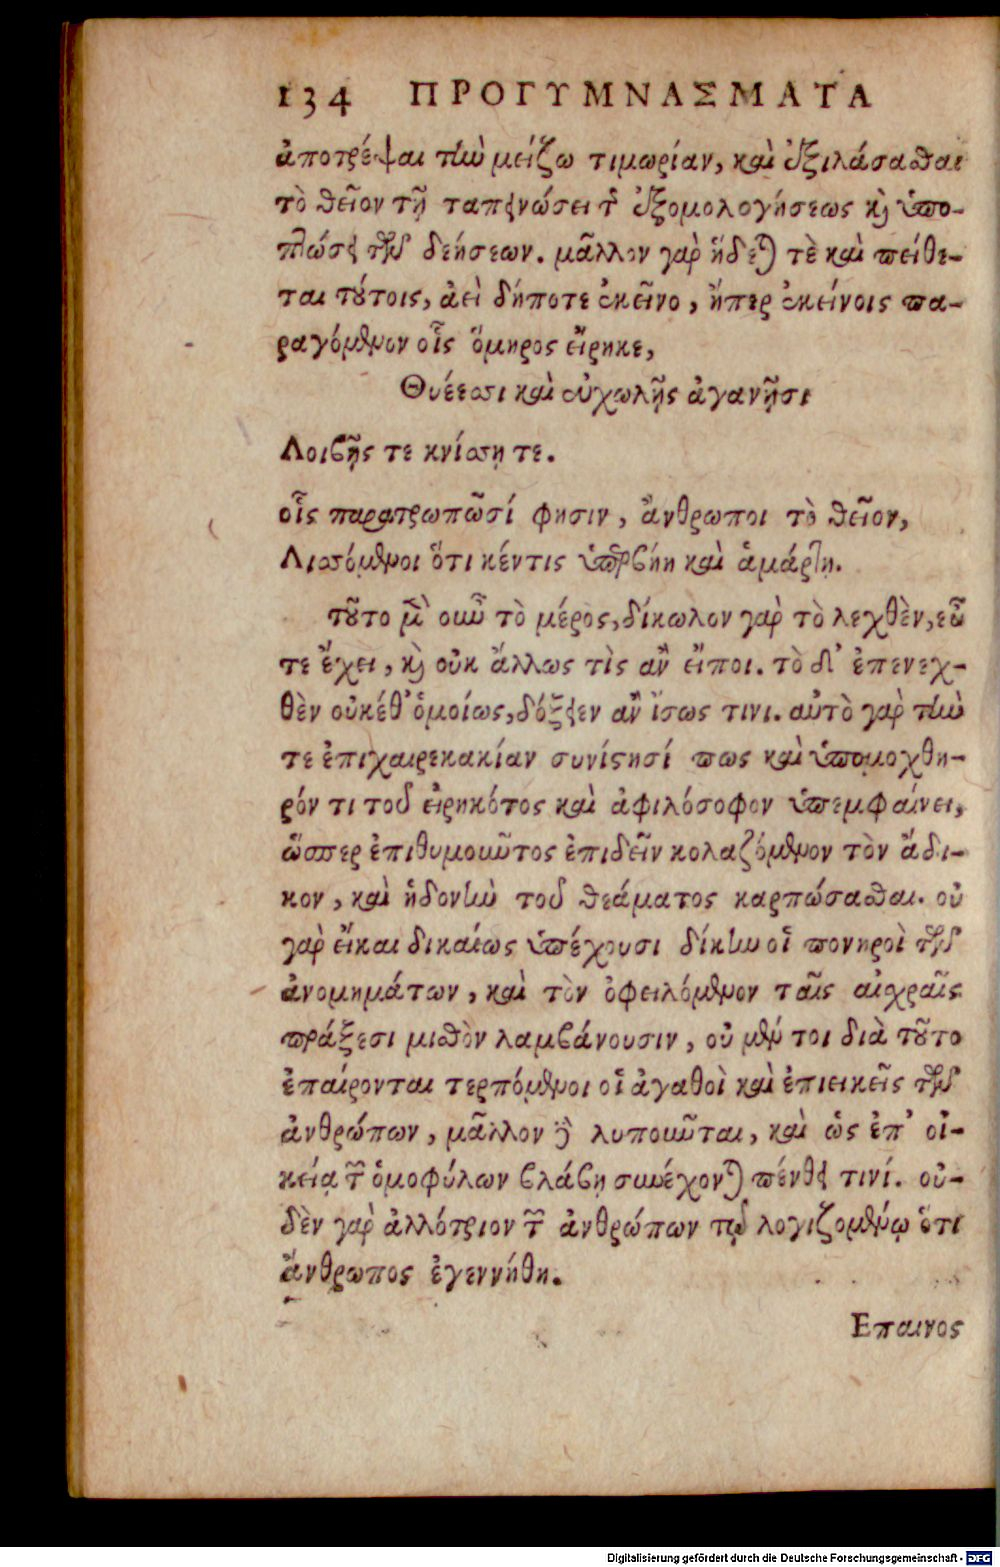 134 ΠΡΟΓΥΜΝΑΣΜΑΤΑ
ἀποτρέψαι τὴν μείζω τιμωρίαν, καὶ ἐξιλάσασθαι
τὸ θεῖον τῇ ταπεινώσει τῆς ἐξομολογήσεως καὶ ὑπο-
πτώσει τῶν δεήσεων. μᾶλλον γὰρ ἥδεται τὲ καὶ πείθε-
ται τούτοις, ἀεὶ δήποτε ἐκεῖνο, ἤπερ ἐκείνοις πα-
ραγόμενον οἷς ὅμηρος εἴρηκε,
Θυέεσσι καὶ εὐχωλῇς ἀγανῇσι
Λοιβῇς τε κνίσσῃ τε.
οἷς παρατρωπῶσί φησιν, ἄνθρωποι τὸ θεῖον,
Λισσόμενοι ὅτι κέντις ὑπερβήη καὶ ἁμάρτῃ.
τοῦτο μὲν οὖν τὸ μέρος, δίκωλον γὰρ τὸ λεχθὲν, εὖ
τε ἔχει, καὶ οὐκ ἄλλως τὶς ἂν εἴποι. τὸ δ' ἐπενεχ-
θὲν οὐκέθ' ὁμοίως, δόξειεν ἂν ἴσως τινι. αὐτὸ γὰρ τὴν
τε ἐπιχαιρεκακίαν συνίστησί πως καὶ ὑπομοχθη-
ρόν τι τοῦ εἰρηκότος καὶ ἀφιλόσοφον ὑπεμφαίνει,
ὥσπερ ἐπιθυμοῦντος ἐπιδεῖν κολαζόμενον τὸν ἄδι-
κον, καὶ ἡδονὴν τοῦ θεάματος καρπώσασθαι. οὐ
γὰρ εἴκαι δικαίως ὑπέχουσι δίκην οἱ πονηροὶ τῶν
ἀνομημάτων, καὶ τὸν ὀφειλόμενον ταῖς αἰσχραῖς
πράξεσι μισθὸν λαμβάνουσιν, οὐ μέν τοι διὰ τοῦτο
ἐπαίρονται τερπόμενοι οἱ ἀγαθοὶ καὶ ἐπιεικεῖς τῶν
ἀνθρώπων, μᾶλλον δὲ λυποῦνται, καὶ ὡς ἐπ' οἰ-
κείᾳ τῶν ὁμοφύλων βλάβῃ συνέχονται πένθει τινί. οὐ-
δὲν γὰρ ἀλλότριον τῶν ἀνθρώπων τῷ λογιζομένῳ ὅτι
ἄνθρωπος ἐγεννήθη.
Επαινος
Digitalisierung gefördert durch die Deutsche Forschungsgemeinschaft - DFG